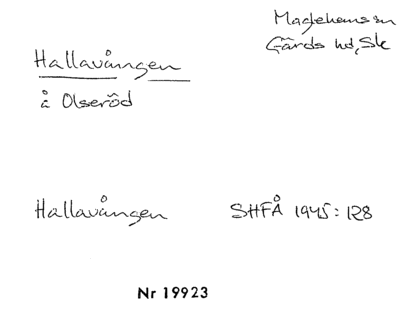 Maglehems sn
Gärds hd, Sk
Hallavången
å Olseröd
Hallavången SHFÅ 1945:128
Nr 19923